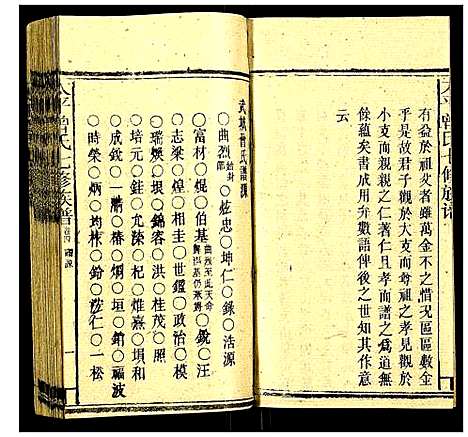 有益於祖父者雖萬金不之惜况區區數金
乎是故君子觀於大支而尊祖之孝見觀於
小支而親親之仁著仁且孝而譜之道無
餘蘊矣書成用弁數語俾後之世知其作意
云
太平曾氏七修族譜
武城曾氏源
曲烈始封○炫忠○坤仁○錄○浩源
○富材○焜○伯基○銳○汪
○志梁○煌○相圭○世鑑○政治○模
○瑞煐○垠○錦客○洪○桂茂○照
○培元○銈○允○杞○煒嘉○塤和
○成銳○一○椿○炯○垣○錆○福波
○時榮○炳○均棟○鈖○仁○一松